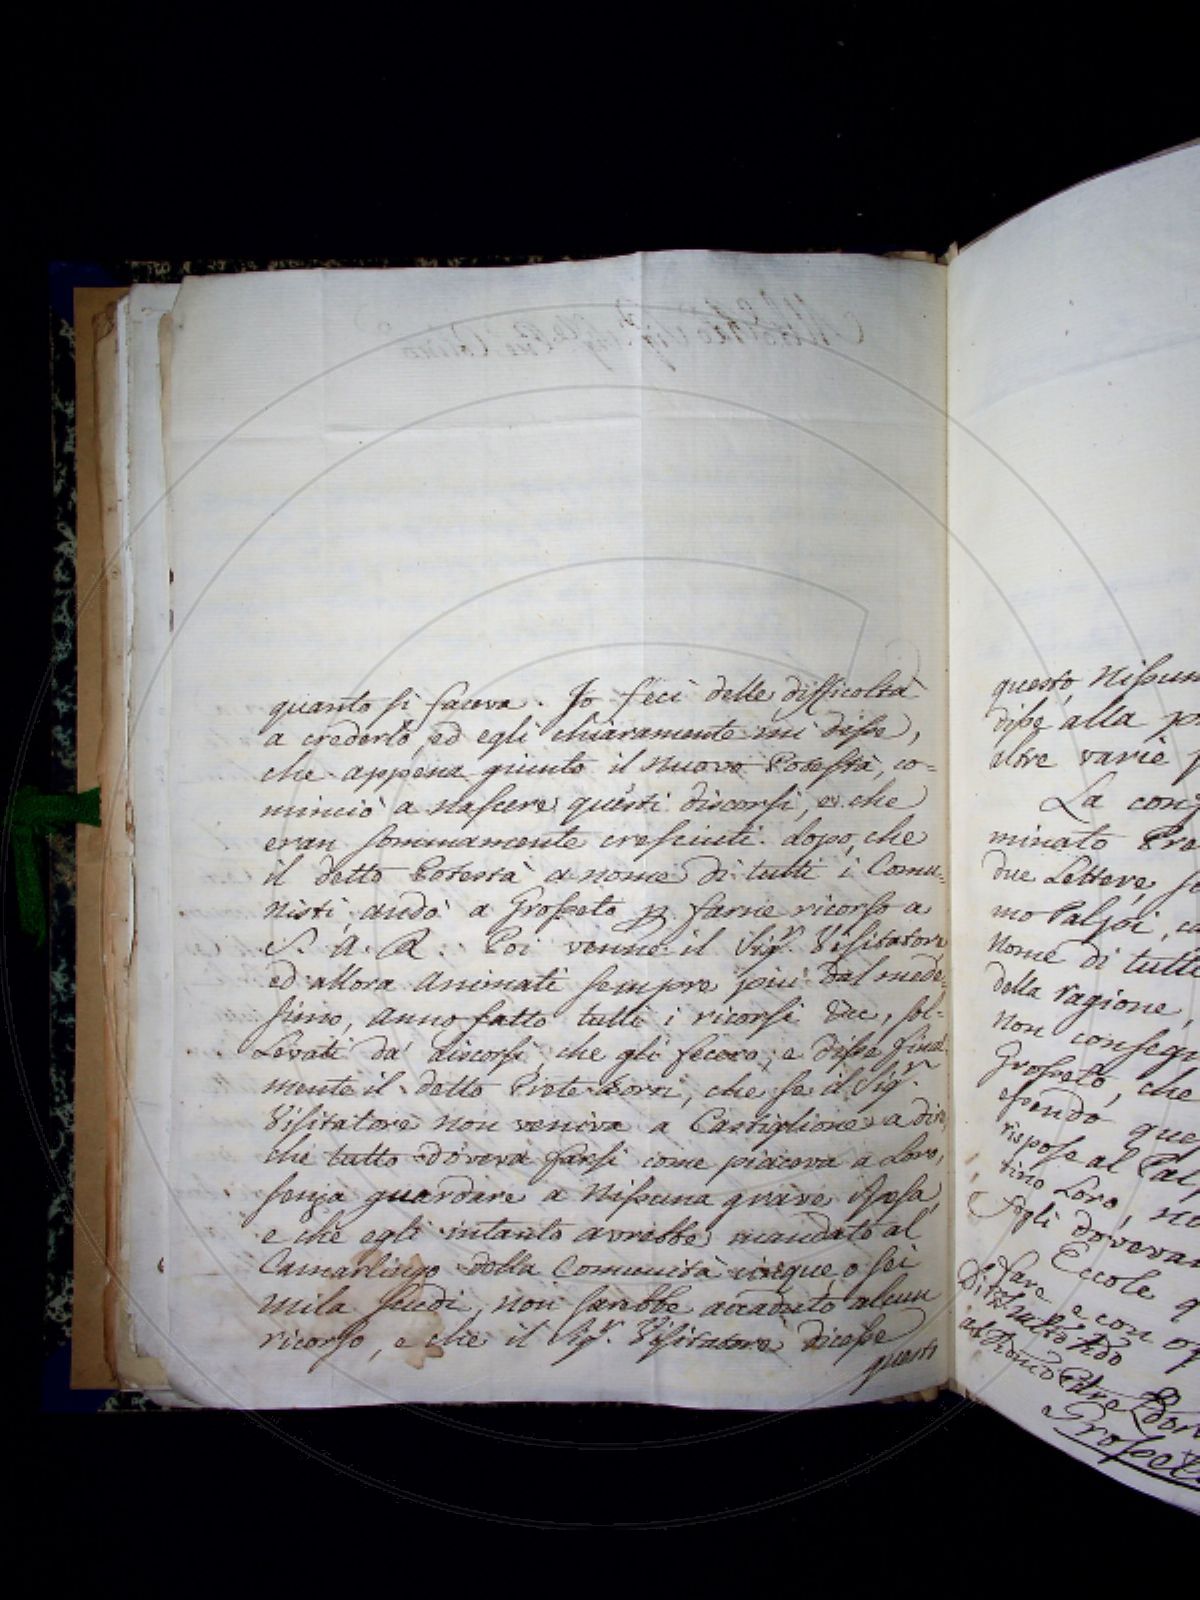 quanto si faceva. Io feci delle difficoltà
a crederlo, ed egli chiaramente mi disse,
che appena giunto il nuovo Potestà, co=
minciò a nascere questi discorsi, e che
eran sommamente cresciuti dopo, che
il detto Potestà a nome di tutti i Comu=
nisti, andò a Grosseto p. farne ricorso a
S. A. R. Poi venne il Sig.r Visitatore
ed allora animati sempre più dal mede=
simo, anno fatto tutti i ricorsi che, sol=
levati da discorsi che gli fecero; e disse final
mente il detto Prete, che se il Sig.r
Visitatore non veniva a Castiglione a dire,
che tutto doveva farsi come piaceva a Loro,
senza guardare a nissuna grave spesa,
e che egli intanto avrebbe mandato al
Camarlingo della Comunità cinque, o sei
mila scudi, non sarebbe accaduto alcun
ricorso, e che il Sig.r Visitatore dicesse
questo
questo, Nissun
disse alla
altre varie
La
minato
due Lettere,
mo
nome di tutti
della ragione,
non
Grosseto, che
essendo que
rispose al
tino Loro,
Fogli dovevan
Eccole
fare e con
Grosseto